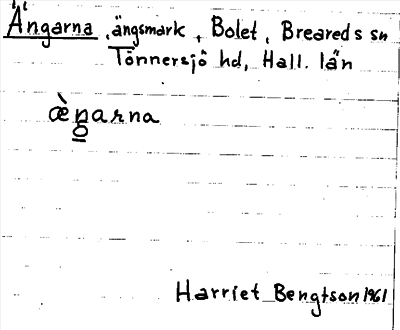 Ängarna, ängsmark, Bolet, Breareds sn
Tönnersjö hd, Hall. län
æ̀n̥arna
Harriet Bengtson 1961